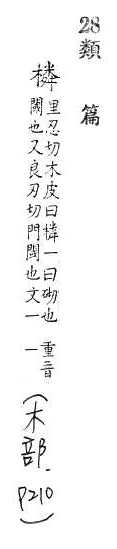 28類篇
橉
里忍切木皮曰橉一曰砌也
閾也又良刃切門閾也文一
重音一
(木部. p210)